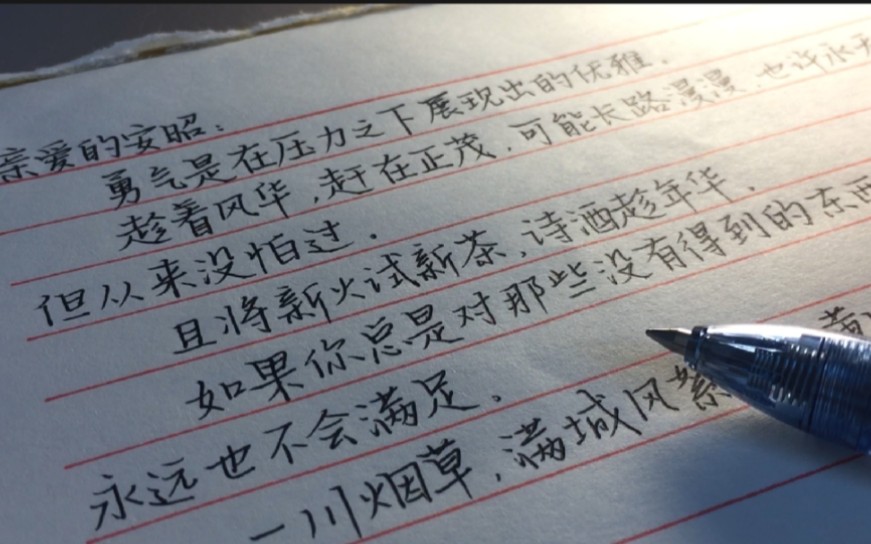 亲爱的安昭：
勇气是在压力之下展现出的优雅．
趁着风华，赶在正茂，可能长路漫漫，也许永无
但从来没怕过．
且将新火试新茶，诗酒趁年华．
如果你总是对那些没有得到的东西
永远也不会满足．
一川烟草，满城风絮